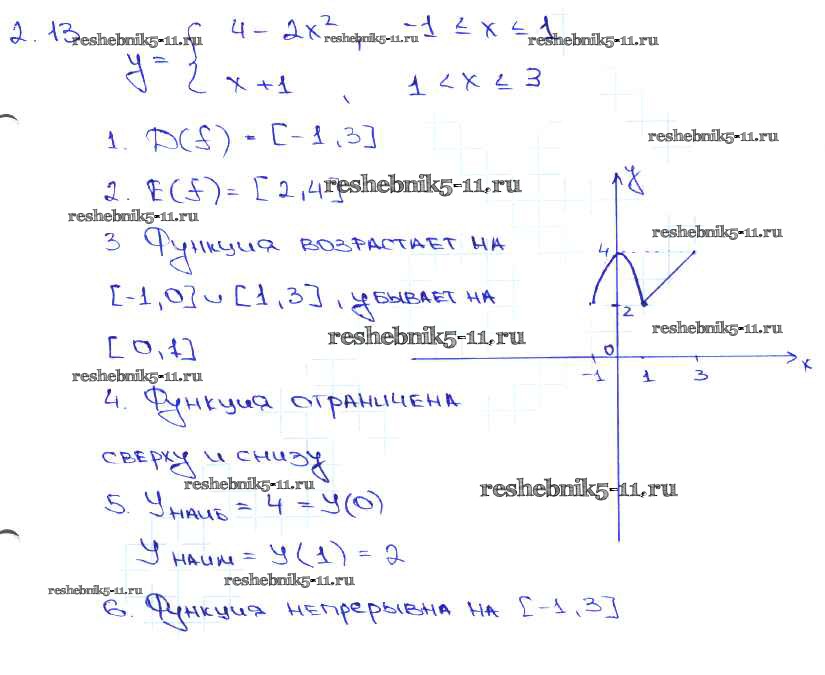 2.13 reshebnik5-11.ru
y = { 4 - 2x², -1 ≤ x ≤ 1
x + 1, 1 < x ≤ 3
reshebnik5-11.ru reshebnik5-11.ru
1. D(f) = [-1,3]
reshebnik5-11.ru
2. E(f) = [2,4] reshebnik5-11.ru
reshebnik5-11.ru
3 Функция возрастает на
[-1,0] ∪ [1,3], убывает на
reshebnik5-11.ru
[0,1]
reshebnik5-11.ru
4. Функция ограничена
сверху и снизу
reshebnik5-11.ru
5. Yнаиб = 4 = y(0)
Yнаим = y(1) = 2
reshebnik5-11.ru
reshebnik5-11.ru
6. Функция непрерывна на [-1,3]
y
reshebnik5-11.ru
4
2
reshebnik5-11.ru
0
x
-1 1 3
reshebnik5-11.ru